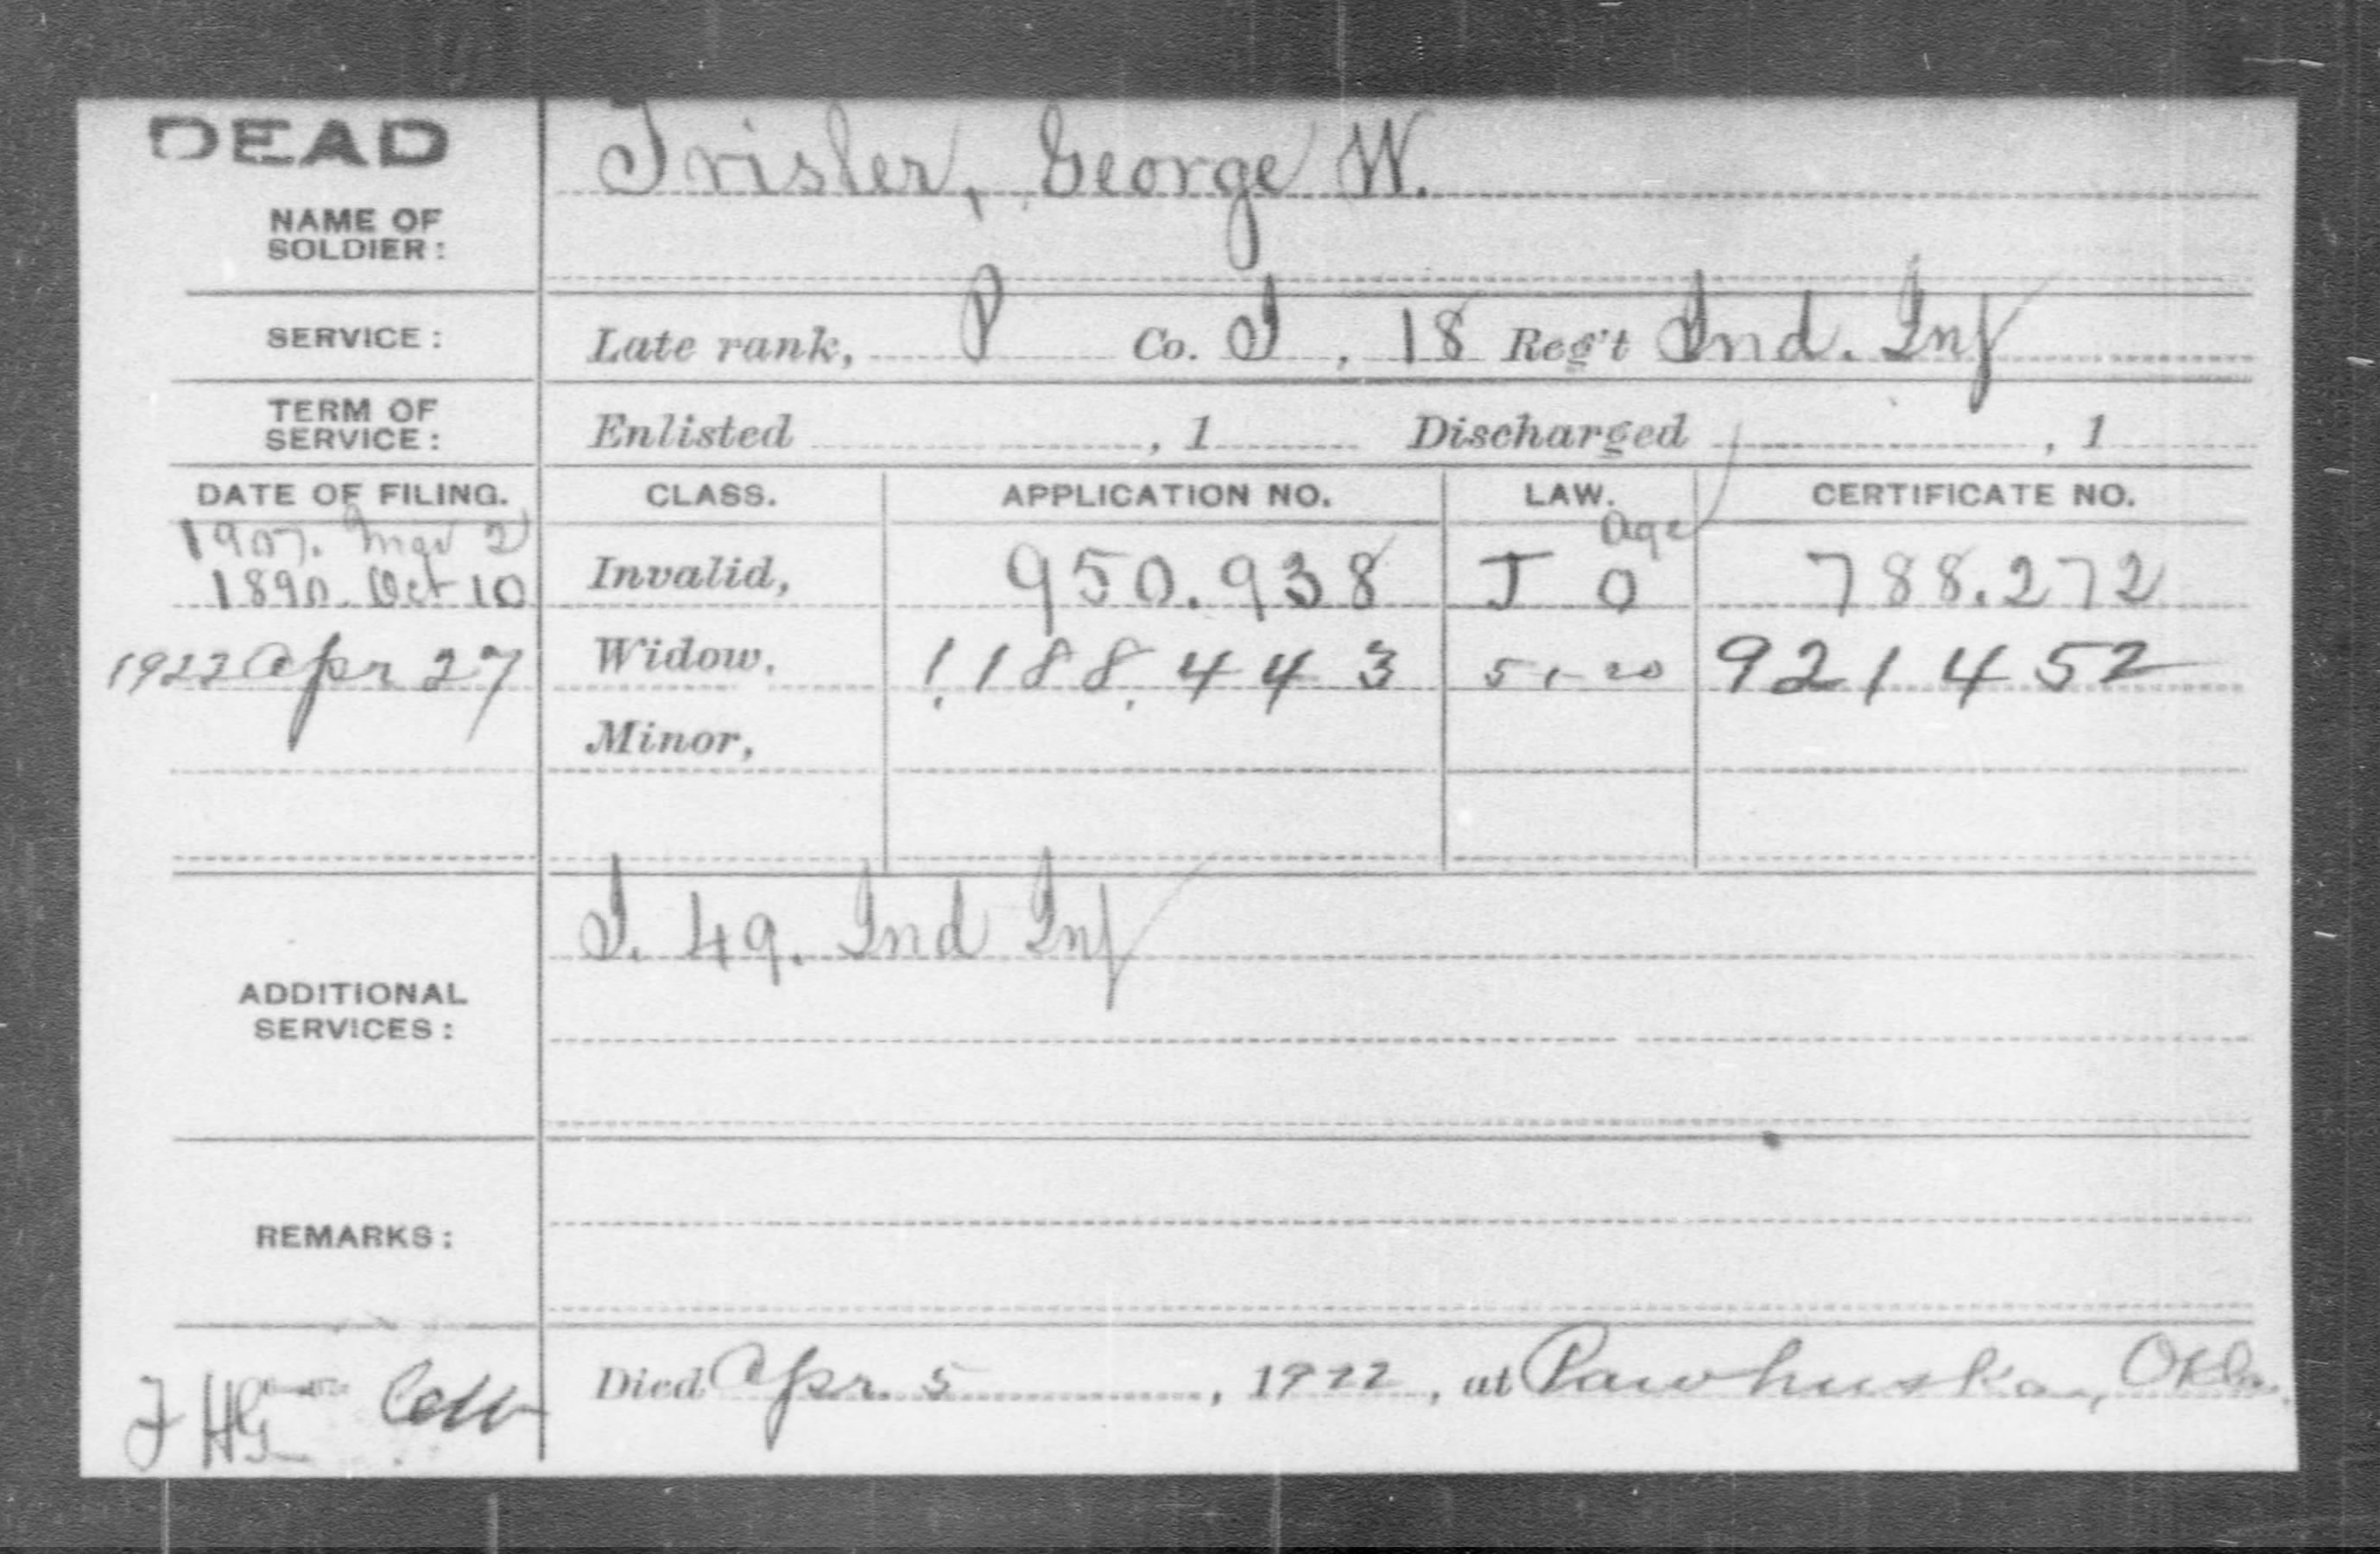 DEAD
Trisler, George W.
NAME OF
SOLDIER:
SERVICE: Late rank, P Co. I, 18 Reg't Ind. Inf
TERM OF
SERVICE: Enlisted , 1 Discharged , 1
DATE OF FILING. CLASS. APPLICATION NO. LAW. CERTIFICATE NO.
1907. Mar 2 Age
1890. Oct 10 Invalid, 950.938 J O 788.272
1922 Apr 27 Widow, 1,188,443 5-1-20 921452
Minor,
I. 49. Ind Inf
ADDITIONAL
SERVICES:
REMARKS:
Died Apr. 5, 1922, at Pawhuska, Okla.